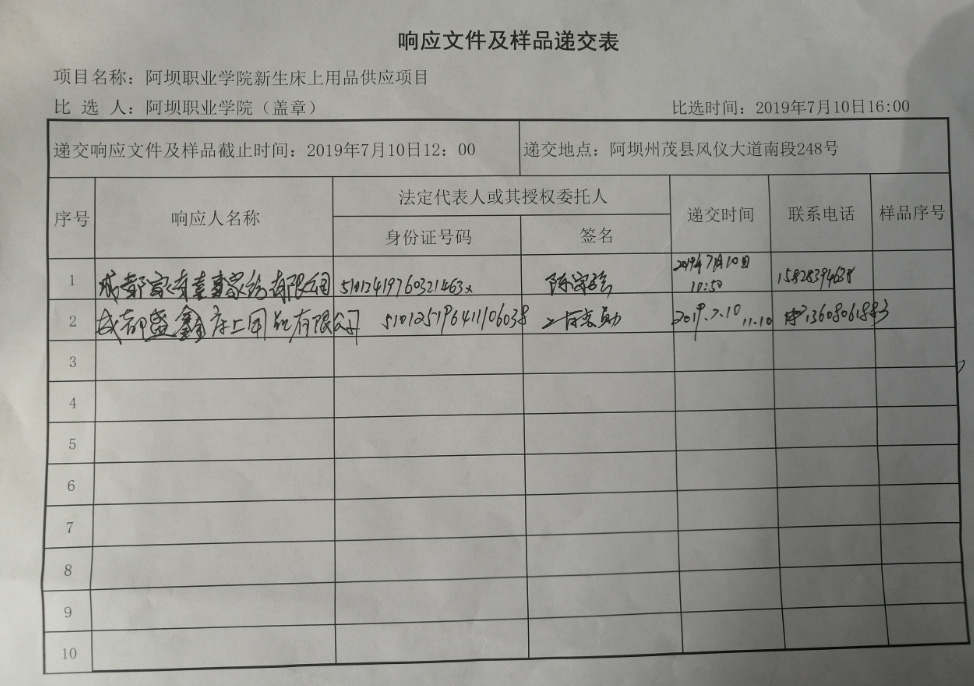 响应文件及样品递交表
项目名称：阿坝职业学院新生床上用品供应项目
比 选 人：阿坝职业学院（盖章） 比选时间：2019年7月10日16:00
递交响应文件及样品截止时间：2019年7月10日12：00 递交地点：阿坝州茂县凤仪大道南段248号
序号 响应人名称 法定代表人或其授权委托人 递交时间 联系电话 样品序号
身份证号码 签名
1 成都 家纺有限公司 2019年7月10日
2 成都盛鑫床上用品有限公司 2019.7.10 11.10
3
4
5
6
7
8
9
10